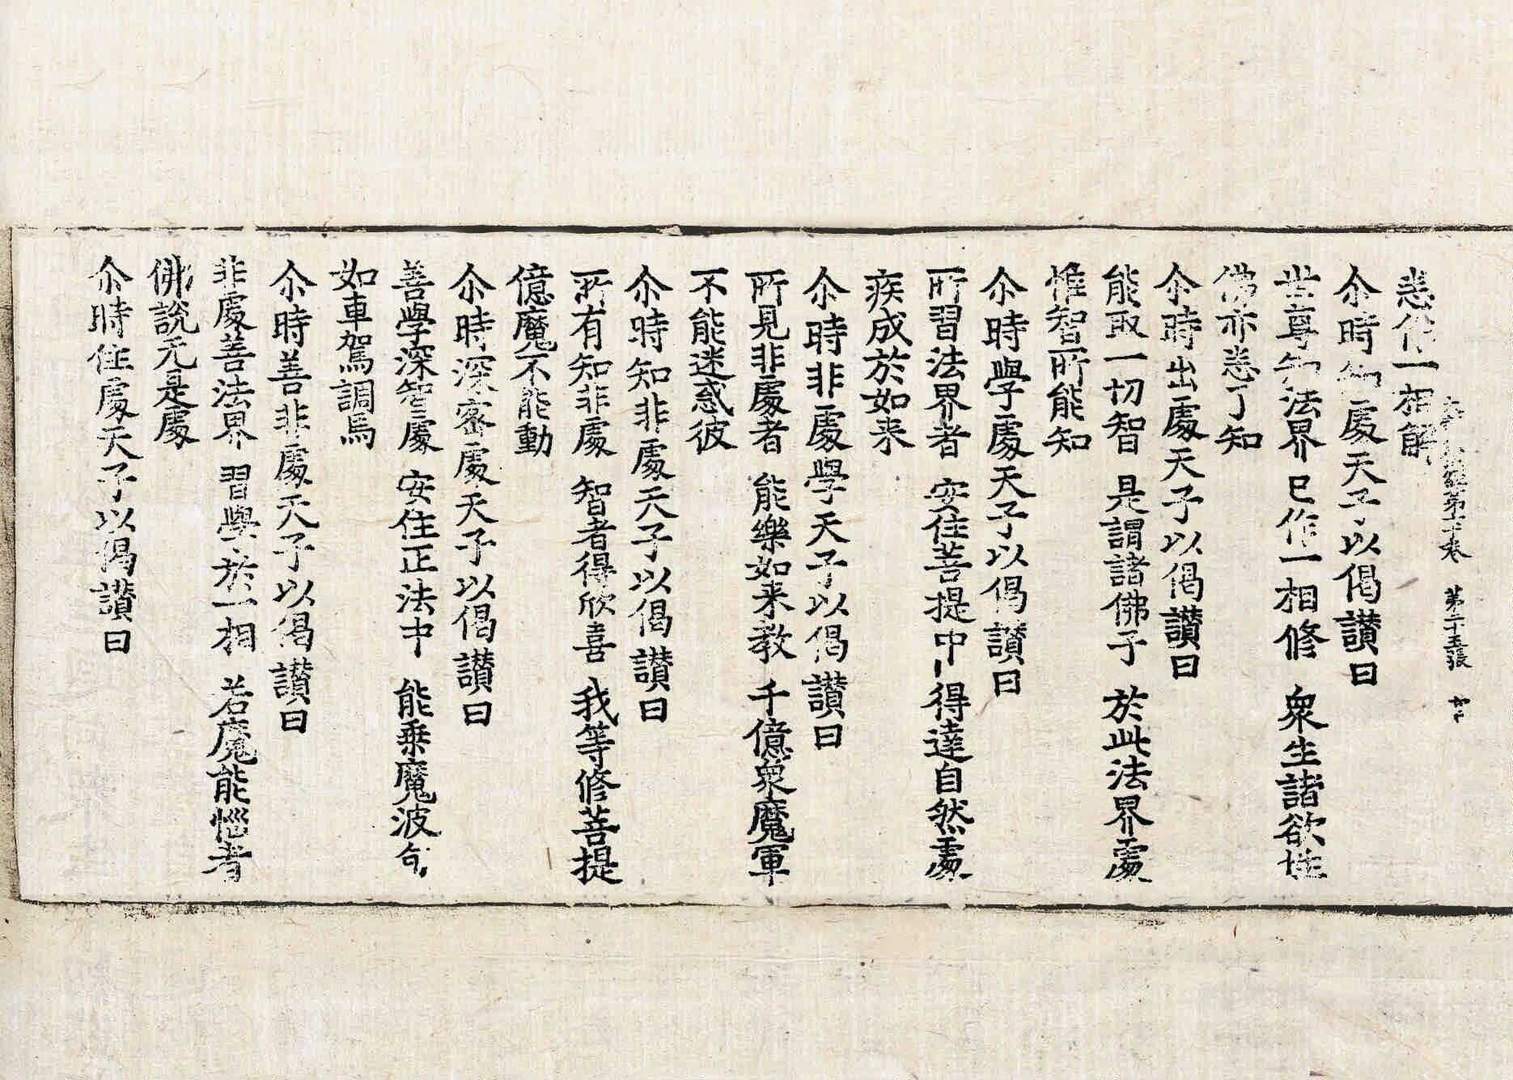 悉作一相解
尒時知處天子以偈讃曰
世尊知法界 已作一相修 衆生諸欲性
佛亦悉了知
尒時出處天子以偈讃曰
能取一切智 是謂諸佛子 於此法界處
惟智所能知
尒時學處天子以偈讃曰
所習法界者 安住菩提中 得達自然處
疾成於如来
尒時非處學天子以偈讃曰
所見非處者 能樂如来教 千億衆魔軍
不能迷惑彼
尒時知非處天子以偈讃曰
所有知非處 智者得欣喜 我等修菩提
億魔不能動
尒時深密處天子以偈讃曰
善學深智處 安住正法中 能乗魔波旬
如車駕調馬
尒時善非處天子以偈讃曰
非處善法界 習學於一相 若魔能惱者
佛說无是處
尒時住處天子以偈讃曰
第十卷 第二十五張